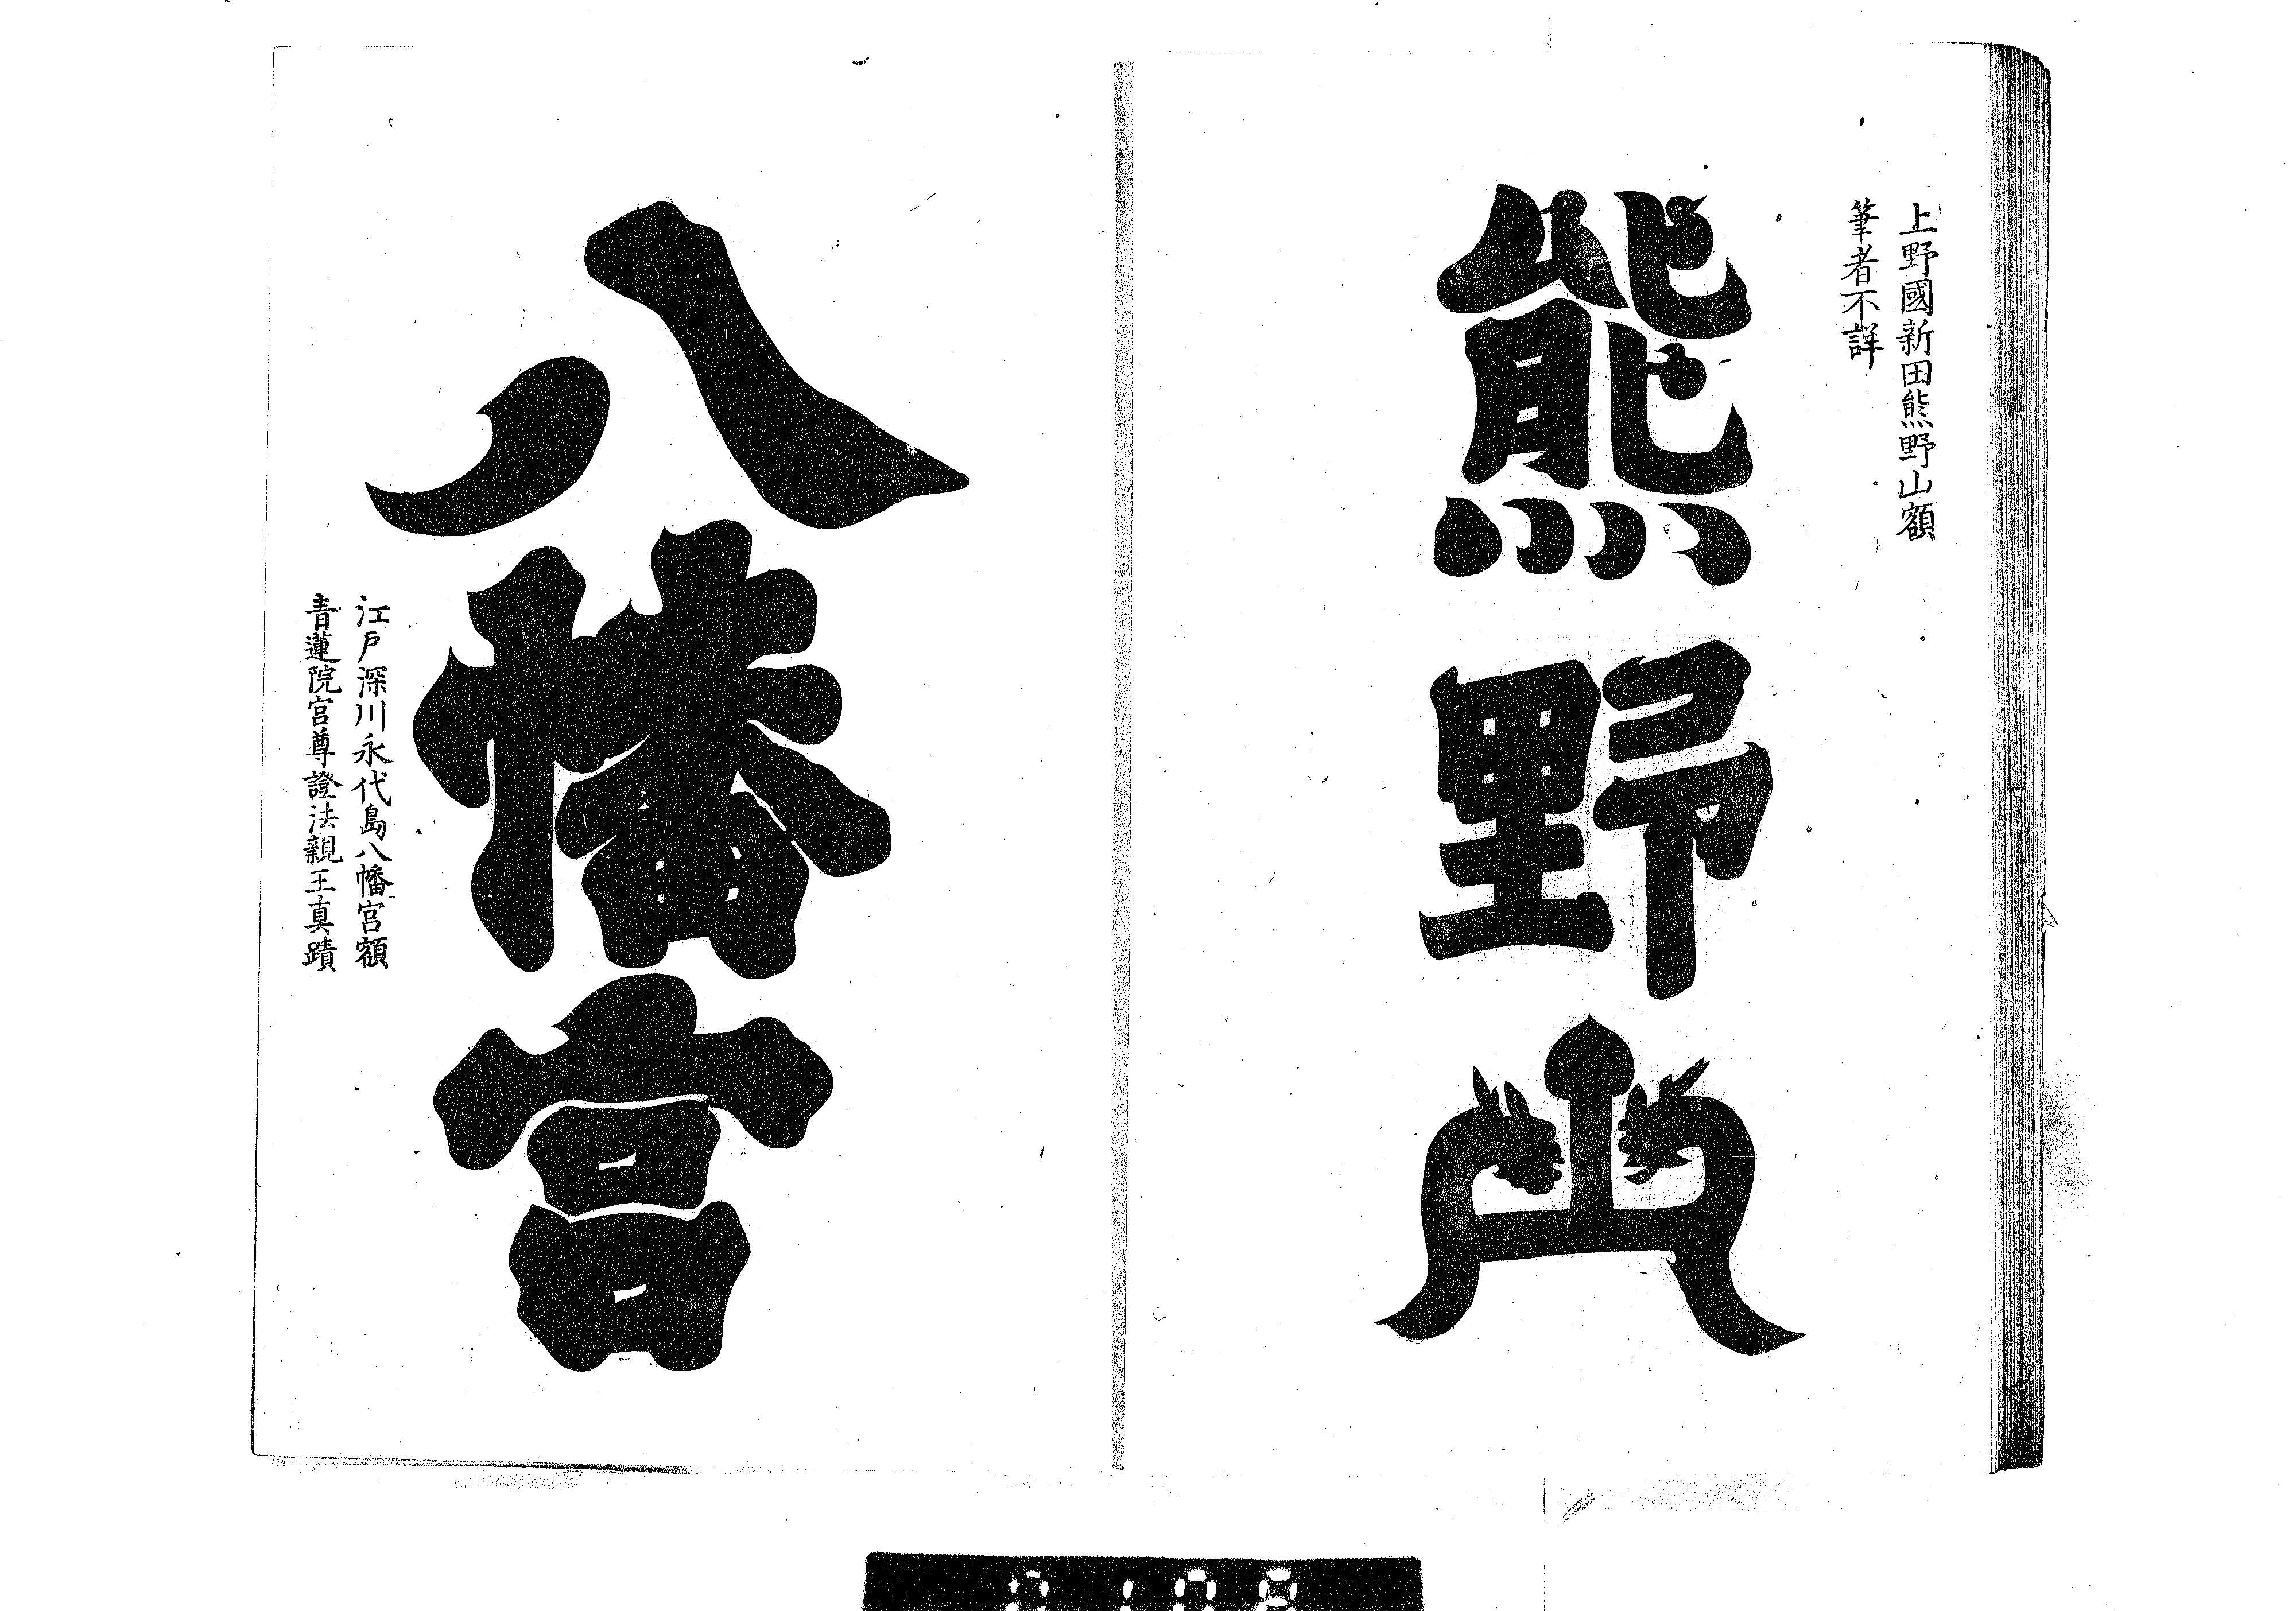 上野國新田熊野山額
筆者不詳
熊野山
八幡宮
江戸深川永代島八幡宮額
青蓮院宮尊證法親王真蹟